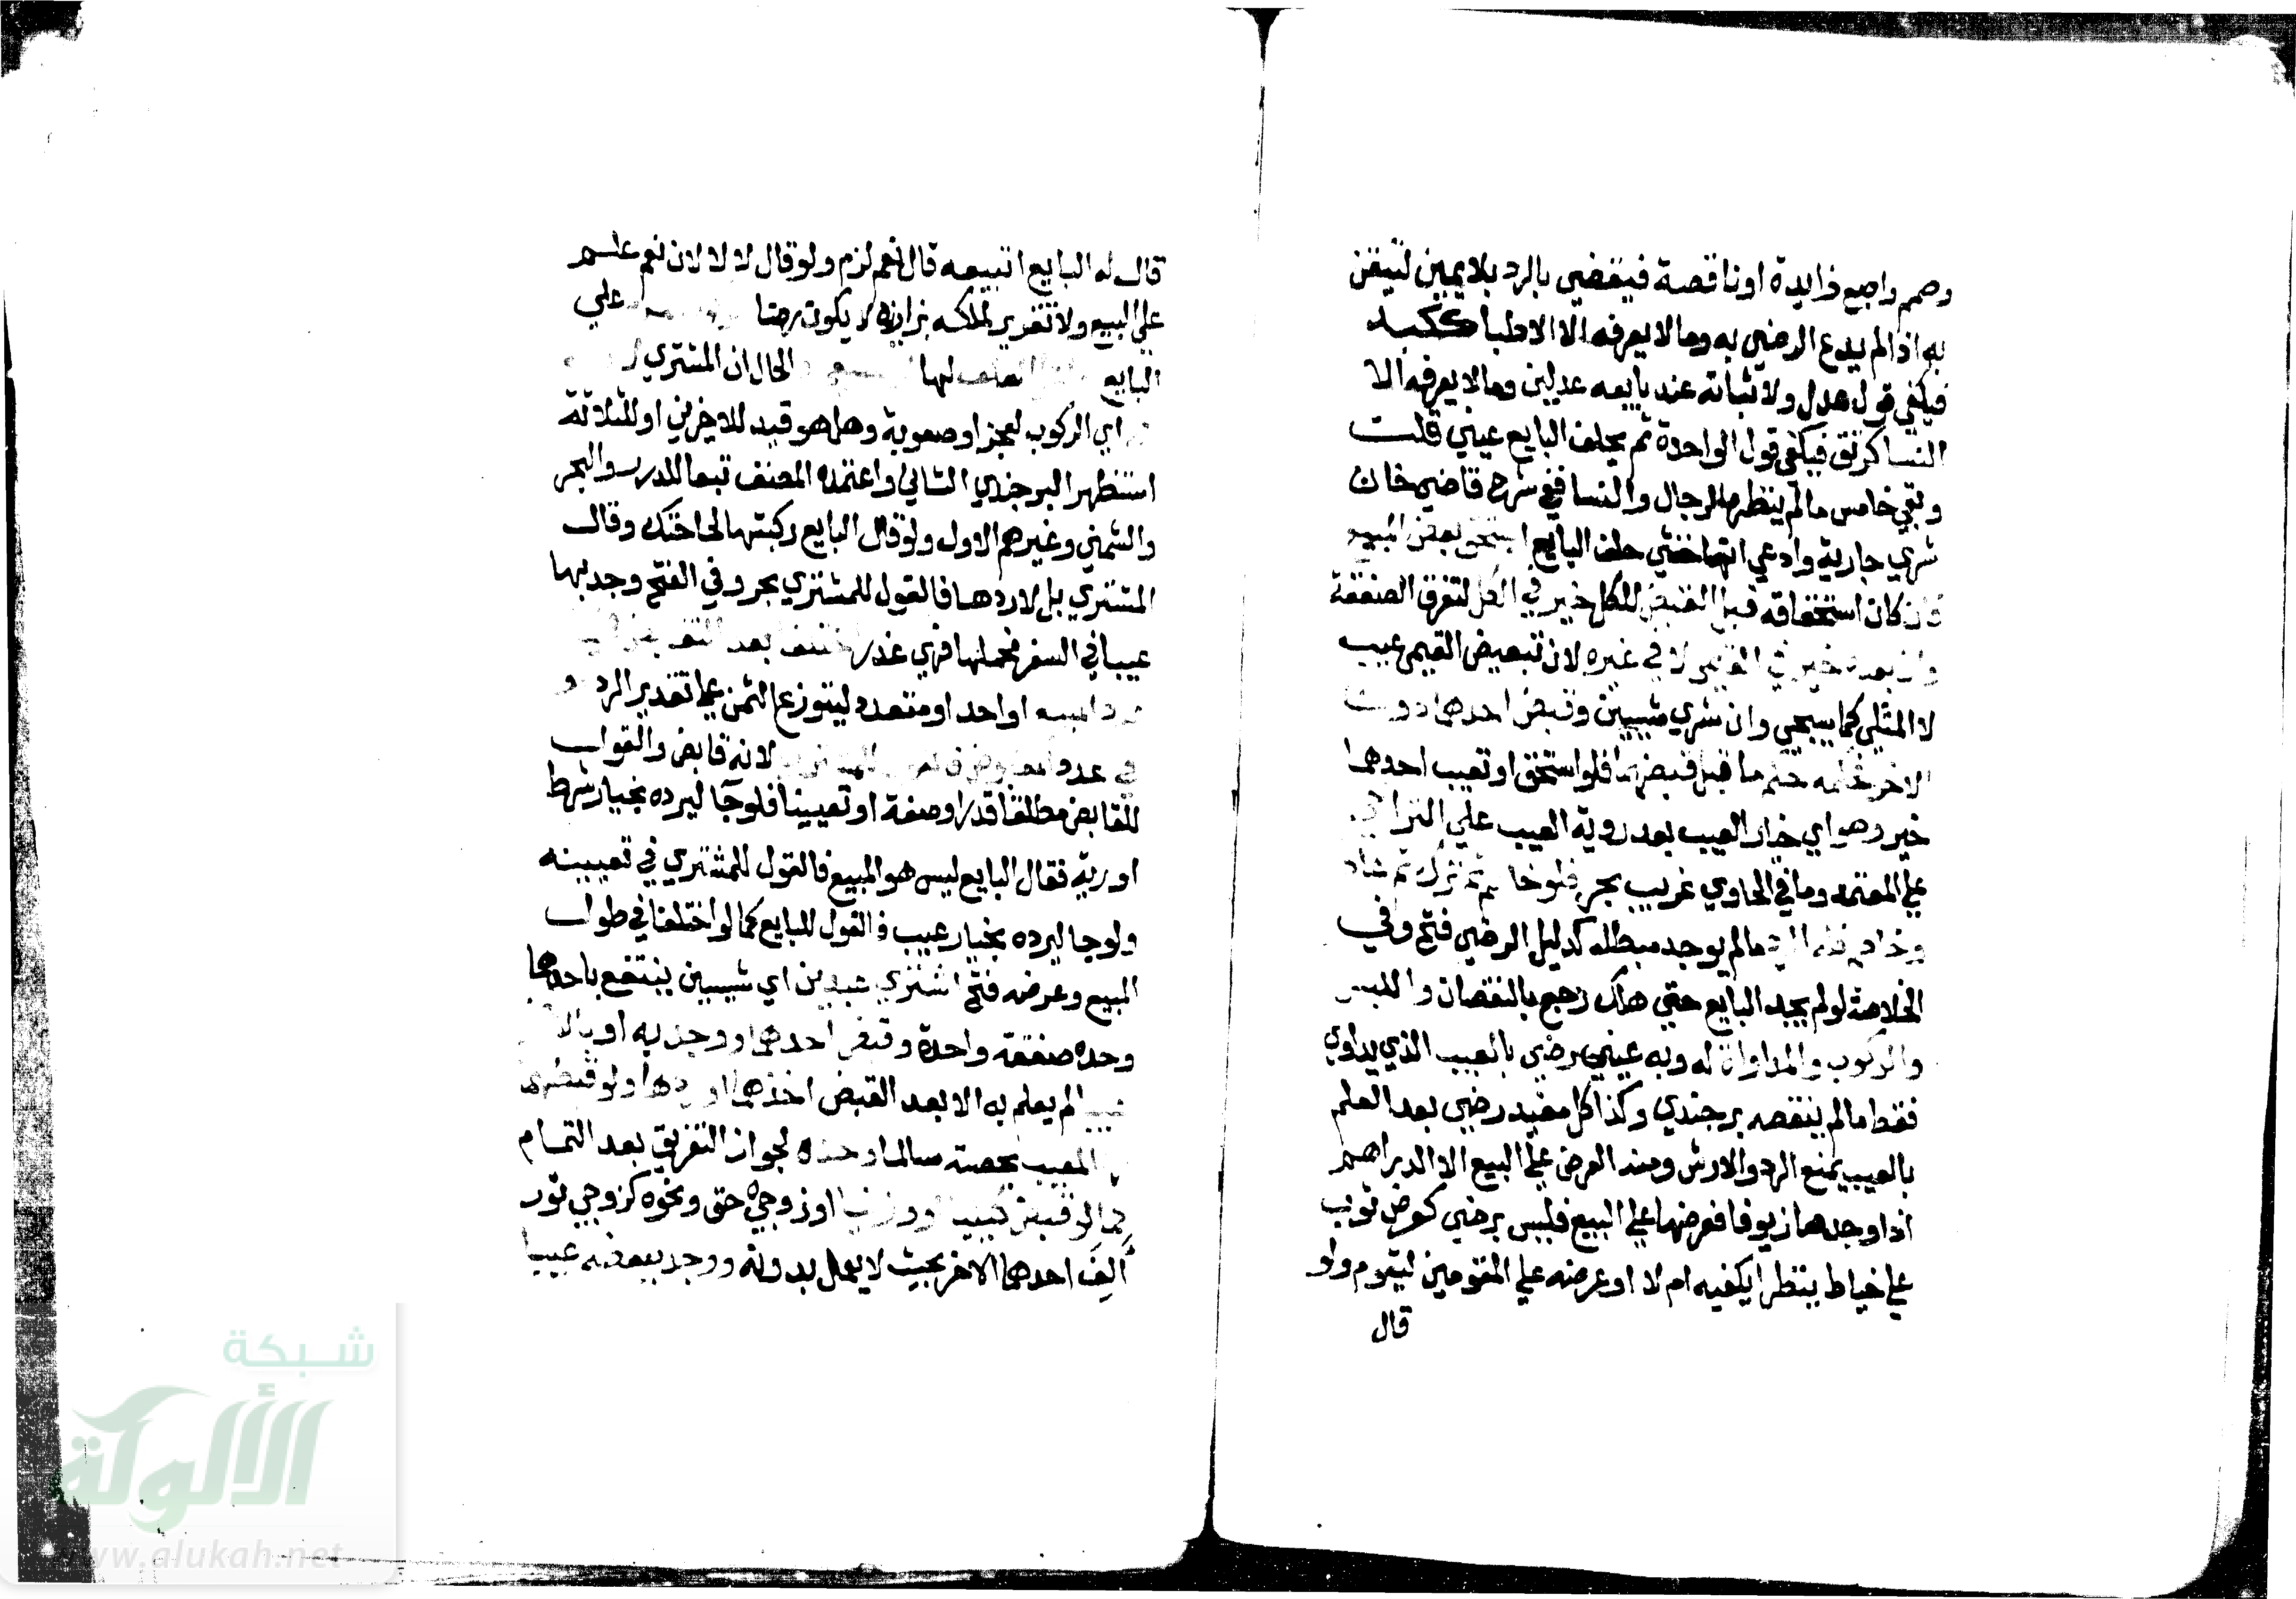 وصمم واصبع زايدة او ناقصة فيقضي بالرد بلا يمين لتيقن
به اذا لم يدع الرضي به وما لا يعرفه الا الاطبا ككبد
فيكفي قول عدل ولاثباته عند بايعه عدلين وما لا يعرفه الا
النسا كرتق فيكفي قول الواحدة ثم يحلف البايع عيني قلت
وبقي خامس ما لم ينظره الرجال والنسا ففي شرح قاضي خان
شري جارية وادعي انها خنثي حلف البايع استحق بعض المبيع
فان كان استحقاقه قبل القبض للكل خير في الكل لتفرق الصفقة
وان بعده خير في القيمي لا في غيره لان تبعيض القيمي عيب
لا المثلي كما سيجي وان شري شيبين وقبض احدهما دون
الاخر حكمه حكم ما قبل قبضهما فلو استحق او تعيب احدهما
خير وهو اي خيار العيب بعد روية العيب علي التراخي
علي المعتمد وما في الحاوي غريب بحر فلو خاصم ثم ترك ثم عاد
وخاصم فله الرد مالم يوجد مبطله كدليل الرضي فتح وفي
الخلاصة لو لم يجد البايع حتي هلك رجع بالنقصان واللبس
والركوب والمداواة له وبه عيني رضي بالعيب الذي يداوي
فقط ما لم ينقصه برجندي وكذا كل مفيد رضي بعد العلم
بالعيب يمنع الرد والارش ومنه العرض علي البيع الا الدراهم
اذا وجدها زيوفا فعرضها علي البيع فليس برضي كعرض ثوب
علي خياط ينظر ايكفيه ام لا او عرضه علي المقومين ليقوم ولو
قال
قال له البايع اتبيعه قال نعم لزم ولو قال لا لا لان نعم
علي البيع ولا تقرير لملكه بزازية لا يكون رضا علي
البايع لها الحال ان المشتري
اي الركوب لعجز او صعوبة وهل هو قيد للاخرين او للثلاثة
استظهر البرجندي الثاني واعتمده المصنف تبعا للدرر والبحر
والشمني وغيرهم الاول ولو قال البايع ركبتها لحاجتك وقال
المشتري بل لاردها فالقول للمشتري بحر وفي الفتح وجد بها
عيبا في السفر فحملها فهي عذر اختلفا بعد التقابض
او احد او متعدد ليتوزع الثمن علي تقدير الرد
في عدد المقبوض لانه قابض والقول
للقابض مطلقا قدرا وصفة او تعيينا فلو جا ليرده بخيار شرط
او روية فقال البايع ليس هو المبيع فالقول للمشتري في تعيينه
ولو جا ليرده بخيار عيب فالقول للبايع كما لو اختلفا في طول
المبيع وعرضه فتح اشتري عبدين اي شيبين ينتفع باحدهما
وحده صفقة واحدة وقبض احدهما ووجد به او بالاخر
عيبا لم يعلم به الا بعد القبض اخذهما او ردهما ولو قبضهما
المعيب بحصته سالما وحده لجواز التفريق بعد التمام
كما لو قبض او زوجي خف ونحوه كزوجي ثور
ألِفَ احدهما الاخر بحيث لا يعمل بدونه ووجد ببعضه عيبا
شبكة
الألوكة
www.alukah.net